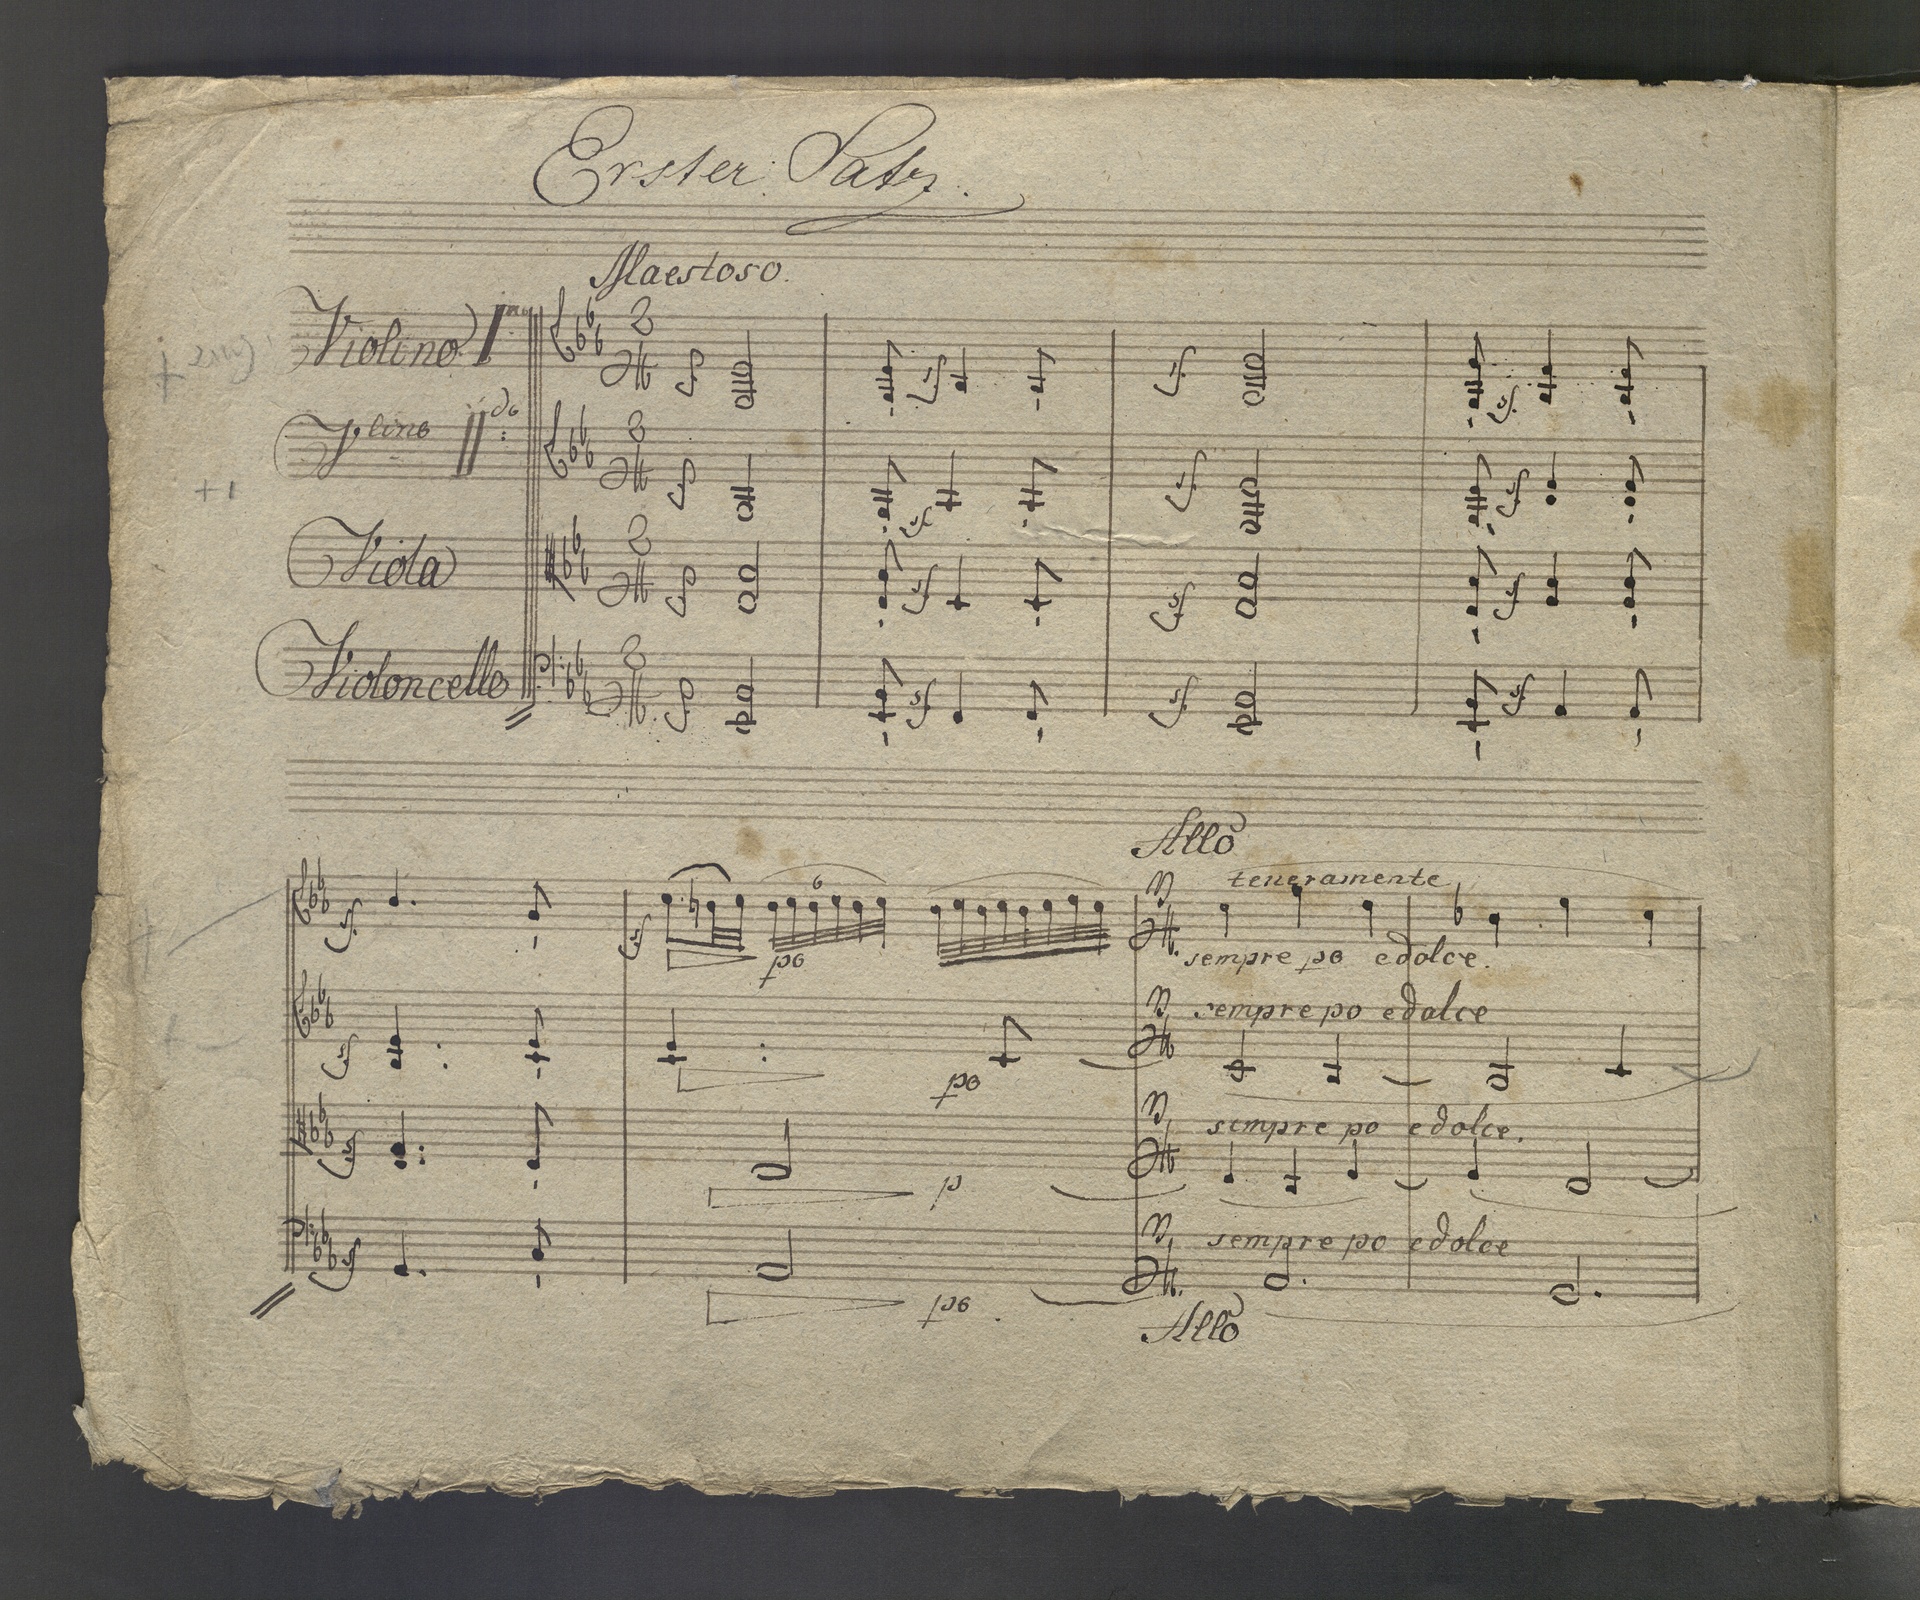 Erster Satz.
Maestoso.
Violino Imo
Vlino IIdo
Viola
Violoncello
2
4
2
4
2
4
2
4
Allo
teneramente
6
po
sempre po e dolce.
sempre po e dolce
po
sempre po e dolce.
p
sempre po e dolce
po
Allo